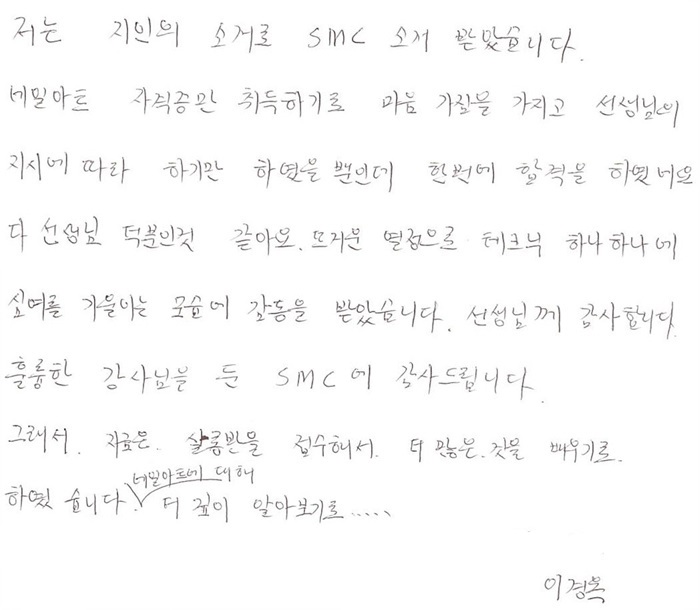 저는 지인의 소개로 SMC 소개 받았습니다.
네일아트 자격증만 취득하기로 마음 가짐을 가지고 선생님의
지시에 따라 하기만 하였을 뿐인데 한번에 합격을 하였네요
다 선생님 덕분인것 같아요. 뜨거운 열정으로 테크닉 하나하나에
심여를 기울이는 모습에 감동을 받았습니다. 선생님께 감사합니다.
훌륭한 강사님을 둔 SMC에 감사드립니다.
그래서. 지금은. 살롱반을 접수해서. 더 많은. 것을 배우기로.
네일아트에 대해
하였습니다. 더 깊이 알아보기로.....
이경옥